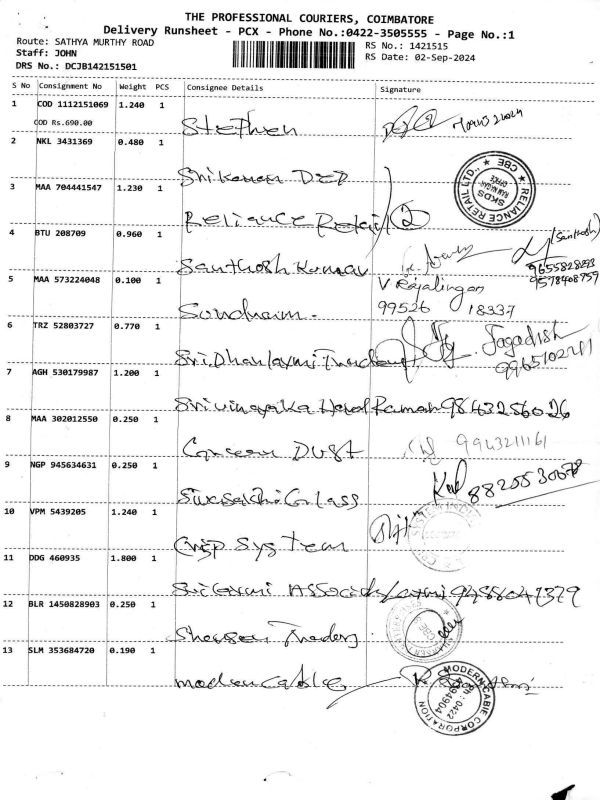 THE PROFESSIONAL COURIERS, COIMBATORE
Delivery Runsheet - PCX - Phone No.:0422-3505555 - Page No.:1
Route: SATHYA MURTHY ROAD RS No.: 1421515
Staff: JOHN RS Date: 02-Sep-2024
DRS No.: DCJB142151501
S No Consignment No Weight PCS Consignee Details Signature
1 COD 1112151069 1.240 1
COD Rs.690.00 Stephen
2 NKL 3431369 0.480 1
RELIANCE RETAIL LTD. ★ CBE ★
SKDS
RAM NAGAR
OFFICE
3 MAA 704441547 1.230 1
Reliance Retail
4 BTU 208709 0.960 1 (Santhosh)
Santhosh Kumar 9655828293
9578408759
5 MAA 573224048 0.100 1 V Rajalingan
99526 18337
6 TRZ 52803727 0.770 1 Jagadish
Sri Dhanlaxmi
7 AGH 530179987 1.200 1
Sri vinayaka Raman 9843256026
8 MAA 302012550 0.250 1
9943211161
9 NGP 945634631 0.250 1
Glass
10 VPM 5439205 1.240 1
Crisp System
11 DDG 460935 1.800 1
Laxmi 9488047379
12 BLR 1450828903 0.250 1
Traders
13 SLM 353684720 0.190 1
modern cable
MODERN CABLE CORPORATION
Ph : 0422